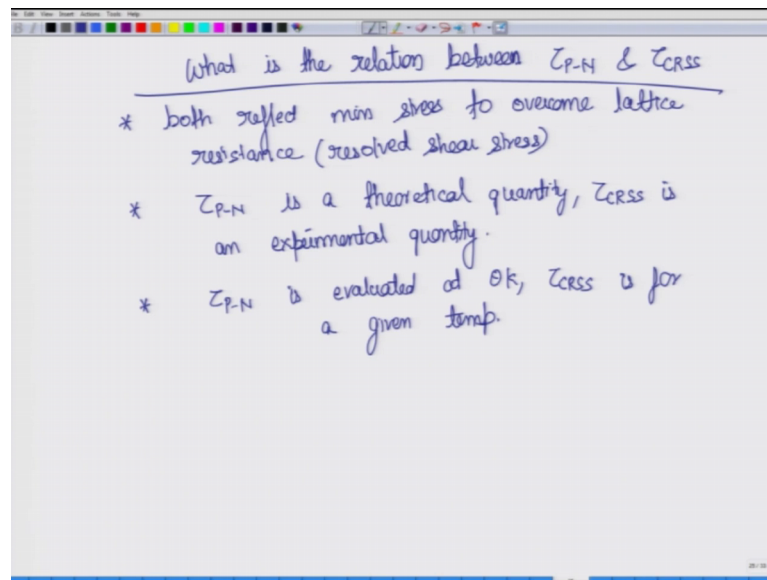 What is the relation between τP-N & τCRSS
* both reflect min stress to overcome lattice
resistance (resolved shear stress)
* τP-N is a theoretical quantity, τCRSS is
an experimental quantity.
* τP-N is evaluated at 0K, τCRSS is for
a given temp.